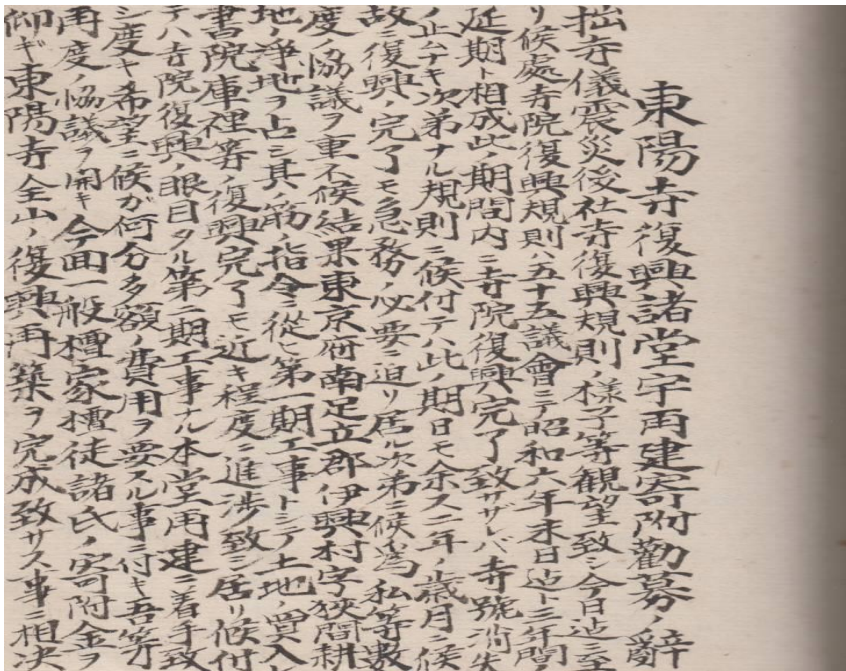 東陽寺復興諸堂宇再建寄附勸募ノ辭
拙寺儀震災後社寺復興規則ノ様子等観望致シ今日迠ニ至
リ候處寺院復興規則ハ五十五議會ニテ昭和六年末日迠ト三年間
延期ト相成此ノ期間内ニ寺院復興完了致サザレバ寺號消失
ノ止ムナキ次第ナル規則ニ候付テハ此ノ期日モ余ス二年ノ歳月ニ候
故ニ復興ノ完了モ急務ノ必要ニ迫リ居ル次第ニ候為私等数
度ノ協議ヲ重ネ候結果東京府南足立郡伊興村字狭間耕
地ノ浄地ヲ占シ其ノ筋ノ指令ニ從ヒ第一期工事トシテ土地ノ買入
書院庫裡等ノ復興完了モ近キ程度ニ進渉致シ居リ候付
テハ寺院復興ノ眼目タル第二期工事ナル本堂再建ニ着手致
シ度キ希望ニ候が何分多額ノ費用ヲ要スル事ニ付キ吾等
再度ノ協議ヲ開キ今回一般檀家檀徒諸氏ノ寄附金ヲ
仰ギ東陽寺全山ノ復興再築ヲ完成致サス事ニ相決